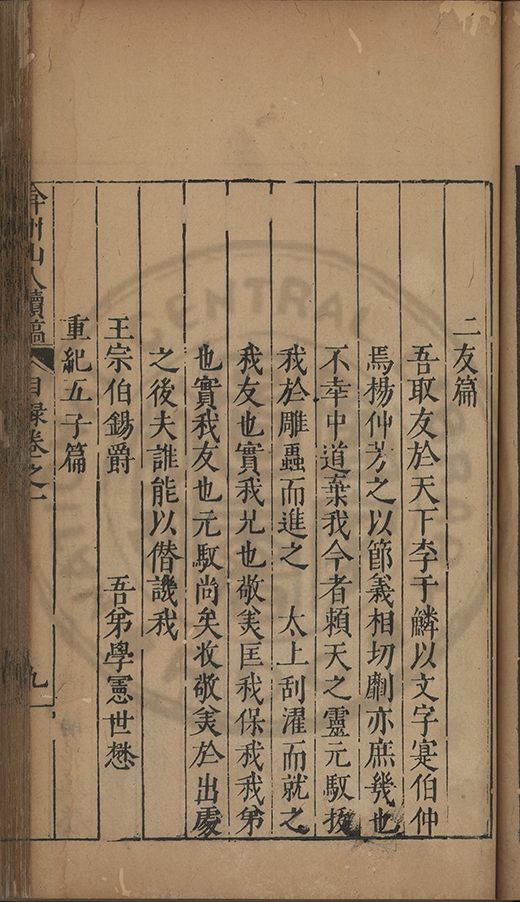 二友篇
吾取友於天下李于鱗以文字寔伯仲
焉楊仲芳之以節義相切劘亦庶幾也
不幸中道棄我今者賴天之靈元馭拔
我於雕蟲而進之　太上刮濯而就之
我友也實我兄也敬美匡我保我我第
也實我友也元馭尚矣攷敬美於出處
之後夫誰能以僭譏我
王宗伯錫爵　吾弟學憲世懋
重紀五子篇
弇州山人續稿　目録卷之一　九